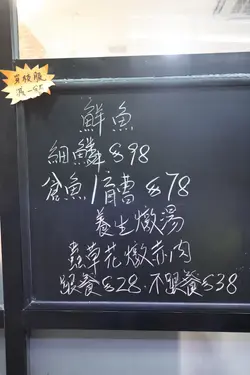 鮮魚
細鱗$98
倉魚/青曹$78
養生燉湯
蟲草花燉赤肉
跟餐$28.不跟餐$38